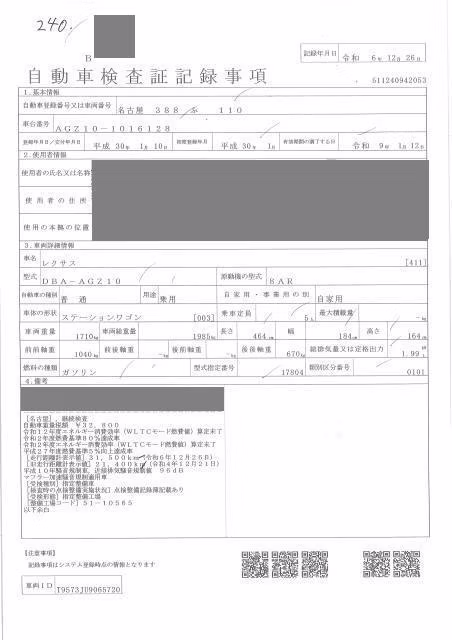 240.
B
記録年月日 令和 6年 12月 26日
自動車検査証記録事項
511240942053
1.基本情報
自動車登録番号又は車両番号 名古屋 388 ふ 110
車台番号 AGZ10-1016128
登録年月日/交付年月日 平成 30年 1月 10日 初度登録年月 平成 30年 1月 有効期間の満了する日 令和 9年 1月 12日
2.使用者情報
使用者の氏名又は名称
使用者の住所
使用の本拠の位置
3.車両詳細情報
車名 レクサス [411]
型式 DBA-AGZ10 原動機の型式 8AR
自動車の種別 普通 用途 乗用 自家用・事業用の別 自家用
車体の形状 ステーションワゴン [003] 乗車定員 5人 最大積載量 -kg
車両重量 1710kg 車両総重量 1985kg 長さ 464cm 幅 184cm 高さ 164cm
前前軸重 1040kg 前後軸重 -kg 後前軸重 -kg 後後軸重 670kg 総排気量又は定格出力 1.99L
燃料の種類 ガソリン 型式指定番号 17804 類別区分番号 0101
4.備考
[名古屋],継続検査
自動車重量税額 ¥32,800
令和12年度エネルギー消費効率(WLTCモード燃費値)算定未了
令和2年度燃費基準80%達成車
令和2年度エネルギー消費効率(WLTCモード燃費値)算定未了
平成27年度燃費基準5%向上達成車
[走行距離計表示値]31,500km(令和6年12月26日)
[旧走行距離計表示値]21,400km(令和4年12月21日)
平成10年騒音規制車,近接排気騒音規制値 96dB
マフラー加速騒音規制適用車
[受検種別]指定整備車
[検査時の点検整備実施状況]点検整備記録簿記載あり
[受検形態]指定整備工場
[整備工場コード]51-10565
以下余白
【注意事項】
記録事項はシステム登録時点の情報となります
車両ID T9573JU9065720